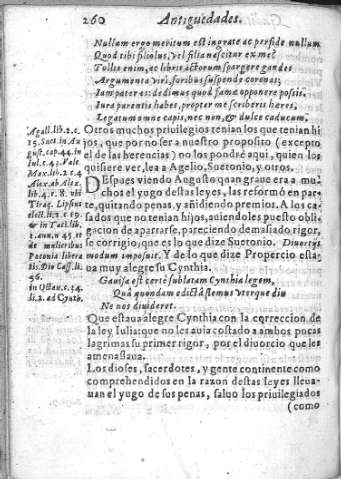 260 Antiguedades.
Nullum ergo meritum est ingrate ac perfide nullum
Quod tibi filiolus, vel filia nascitur ex me?
Tollis enim, ac libris actorum spargere gaudes
Argumenta viri, foribus suspende coronas;
Iam pater es: dedimus quod famæ opponere possis.
Iura parentis habes, propter me scriberis heres,
Legatum omne capis, nec non, & dulce caducum.
Otros muchos priuilegios tenian los que tenian hi
jos, que por no ser a nuestro proposito (excepto
el de las herencias) no los pondrè aqui, quien los
quisiere ver, lea a Agelio, Suetonio, y otros.
Despues viendo Augusto quan graue era a mu
chos el yugo destas leyes, las reformò en par-
te, quitando penas, y añidiendo premios. A los ca
sados que no tenian hijos, auiendoles puesto obli
gacion de apartarse, pareciendo demasiado rigor,
se corrigio, que es lo que dize Suetonio. Diuortijs
modum imposuit. Y de lo que dize Propercio esta-
ua muy alegre su Cynthia.
Gauisa est certè sublatam Cynthia legem,
Quâ quondam edictâ flemus vterque diu
Ne nos diuideret.
Que estaua alegre Cynthia con la correccion de
la ley Iulia: que no les auia costado a ambos pocas
lagrimas su primer rigor, por el diuorcio que les
amenassaua.
Los dioses, sacerdotes, y gente continente como
comprehendidos en la razon destas leyes lleua-
uan el yugo de sus penas, saluo los priuilegiados
(como
Agall. lib. 2. c.
15. Suet. in Au
gust. cap. 44. in
Iul. c. 43. Vale.
Max. lib. 2. c. 4
Alex. ab Alex.
lib. 4. c. 8. vbi
Tiraq. Lipsius
& in Tacit. lib.
2. ann. n. 45. et
de mulieribus
Patauia libera
tis. Dio Cass. li.
56.
in Octau. c. 34.
li. 2. ad Cynth.